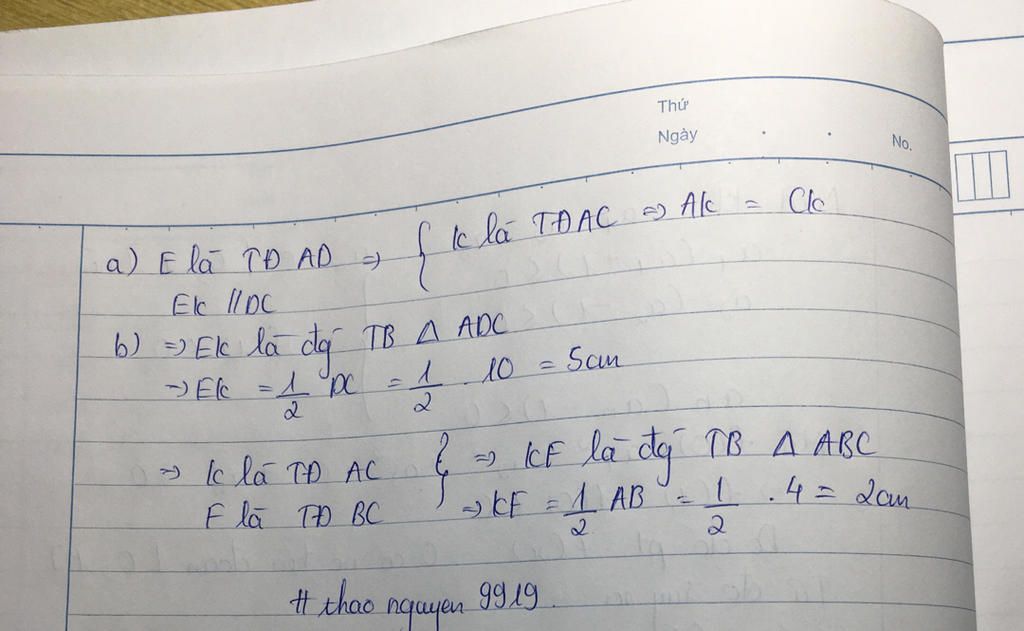 Thứ
Ngày
No.
a) E là TĐ AD ⇒ { K là TĐ AC ⇒ AK = CK
EK // DC
b) ⇒ EK là đg TB Δ ADC
⇒ EK = 1/2 DC = 1/2 . 10 = 5cm
⇒ K là TĐ AC } ⇒ KF là đg TB Δ ABC
F là TĐ BC ⇒ KF = 1/2 AB = 1/2 . 4 = 2cm
# thao nguyen 9919.